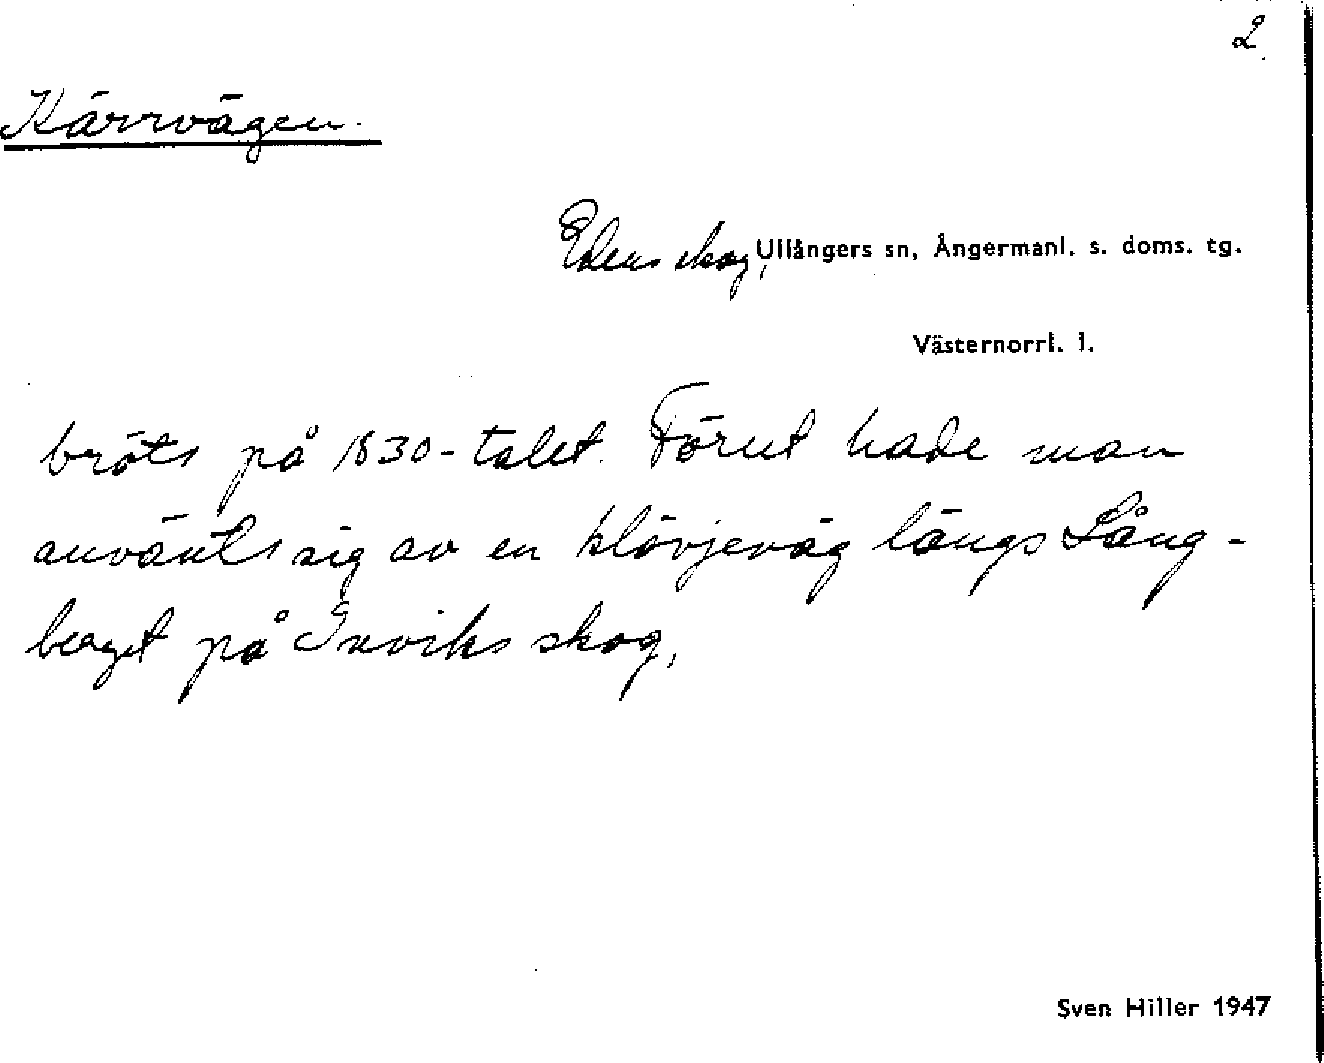 2.
Kärrvägen.
Edens skog, Ullångers sn, Ångermanl. s. doms. tg.
Västernorrl. l.
bröts på 1830-talet. Förut hade man
använt sig av en klövjeväg längs Lång-
berget på Inviks skog,
Sven Hiller 1947